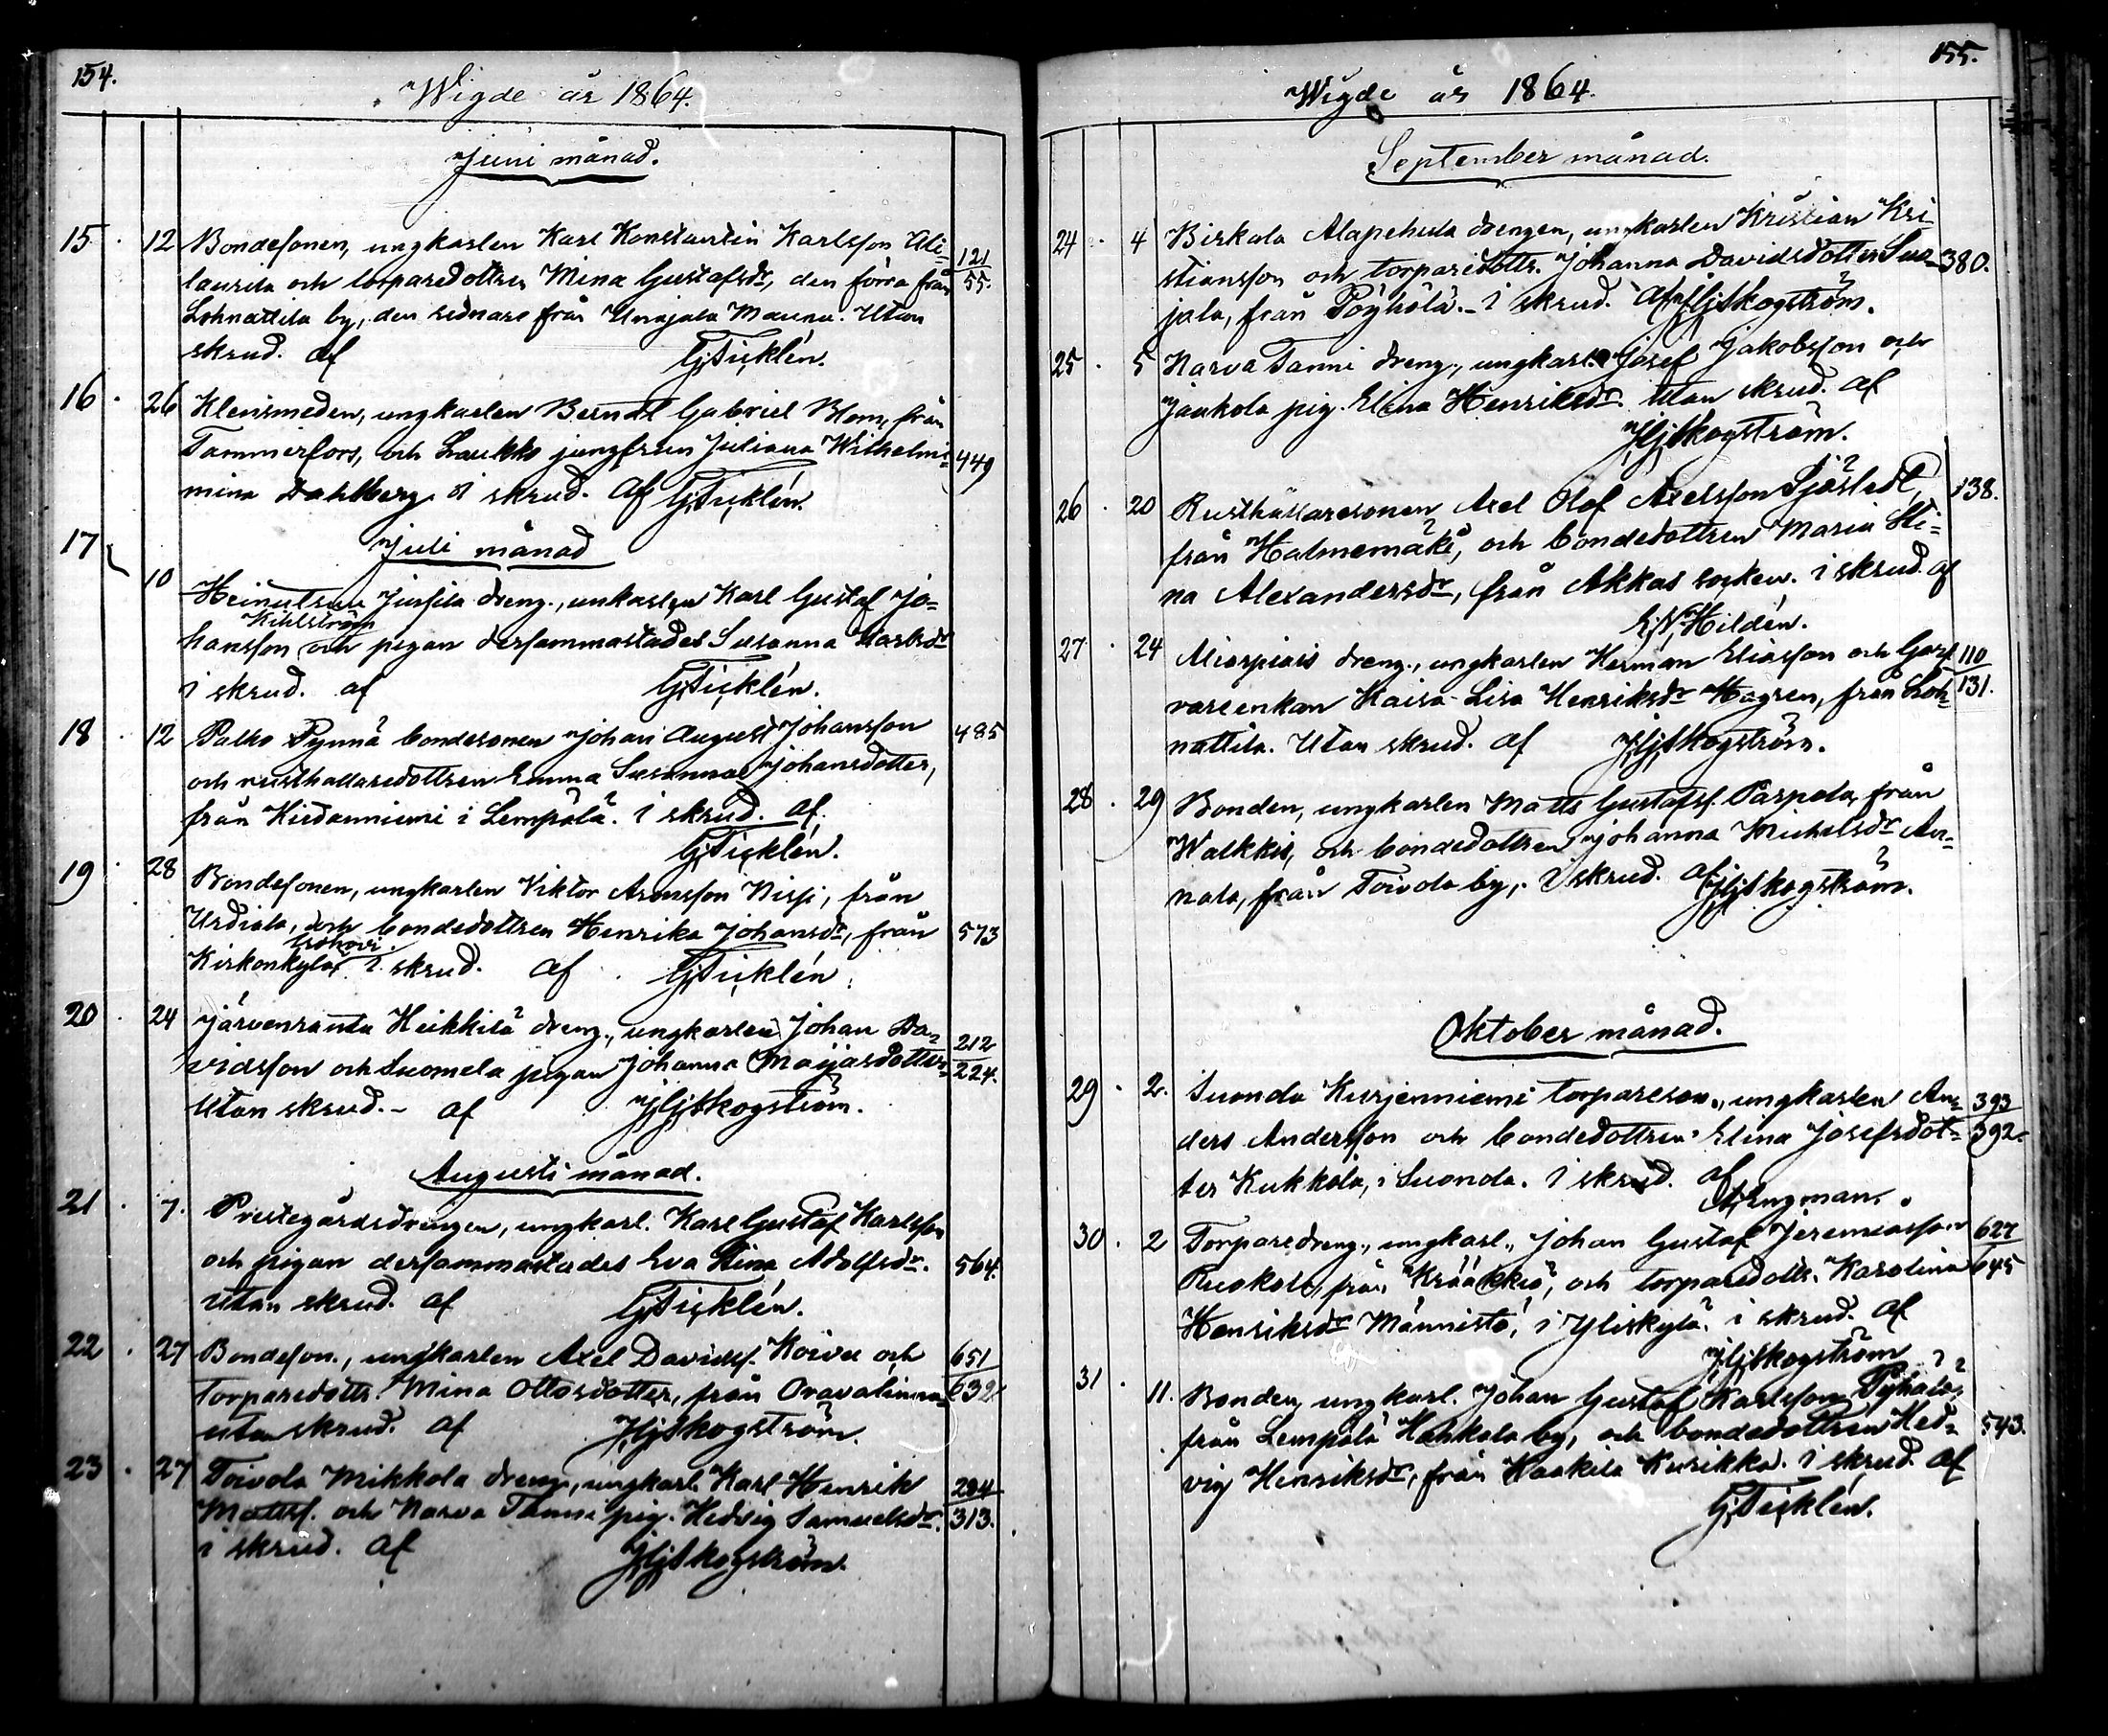 154.
Wigde år 1864.
Juni månad.
15. 12 Bondesonen, ungkarlen Karl Konstantin Karlsson Ali= 121
laurila och torparedottren Mina Gustafsdr, den förra från 55.
Lohnattila by, den sednare från Unajala Maunu. Utan
skrud. af GTicklén.
16. 26 Kleinsmeden, ungkarlen Berndt Gabriel Blom, från
Tammerfors, och Laukko jungfrun Juliana Wilhelmi= 449
mina Dahlberg i skrud. af GTicklén.
17 Juli månad
10 Heinutsuu Jussila dreng., unkarlen Karl Gustaf Jo=
Kihlström
hansson och pigan dersammastädes Susanna Karlsdr
i skrud. af GTicklén.
18. 12 Palho Pynnä bondesonen Johan August Johansson 485
och rusthållaredottren Emma Susanna Johansdotter,
från Kiedanniemi i Lempälä. i skrud. af
GTicklén.
19. 28 Bondesonen, ungkarlen Viktor Aronsson Nisji, från
Urdiala, och bondedottren Henrika Johansdr, från 573
Kirkonkylä. i skrud. af GTicklén.
20. 24 Järvenranta Heikkilä dreng., ungkarlen Johan Da= 212
vidsson och Suomela pigan Johanna Maijasdotter 224.
Utan skrud. - af JHjSkogström.
Augusti månad.
21. 7. Prestegårdsdrengen, ungkarl. Karl Gustaf Karlsson
och pigan dersammastädes Eva Stina Adolfsdr. 564.
utan skrud. af GTicklén.
22. 27 Bondeson., ungkarlen Axel Davidss. Koivu och 651
torparedottr. Mina Ottosdotter, från Oravalinna 632.
utan skrud. af JHjSkogström.
23. 27 Toivola Mikkola dreng., ungkarl. Karl Henrik 294
Mattss. och Narva Tanni pig. Hedvig Samuelsdr. 313.
i skrud. af JHjSkogström.
155.
Wigde år 1864.
September månad.
24. 4 Birkala Alapehula drengen, ungkarlen Kristian Kri
stiansson och torparedottr. Johanna Davidsdotter Suo= 380.
jala, från Pöyhölä. - i skrud. af JHjSkogström.
25. 5 Narva Tanni dreng., ungkarl. Josef Jakobsson och
Jaakola pig. Elina Henriksdr. utan skrud. af
JHjSkogström.
26. 20 Rusthållaresonen Axel Olof Axelsson Sjöstedt, 138.
från Halmemäki, och bondedottren Maria Sti=
na Alexandersdr, från Akkas socken. i skrud. af
E.N.Hildén.
27. 24 Aliarpiais dreng., ungkarlen Herman Eliasson och Garf 110
vareenkan Kaisa Lisa Henriksdr Hagren, från Loh= 131.
nattila. Utan skrud. af JHjSkogström.
28. 29 Bonden, ungkarlen Matts Gustafss. Parpola, från
Walkkis, och bondedottren Johanna Michelsdr An=
nala, från Toivola by,. i skrud. af JHjSkogström.
Oktober månad.
29. 2. Suonda Kurjenniemi torpareson., ungkarlen An= 393
ders Andersson och bondedottren Elina Josefsdot= 392.
ter Kukkola, i Suonda. i skrud. af
AEngman.
30. 2 Torparedreng., ungkarl., Johan Gustaf Jeremiasson 627
Ruokola, från Krääkkiö, och torparedottr. Karolina 645
Henriksdr Männistö, i Yliskylä. i skrud. af
JHjSkogström
31. 11. Bonden, ungkarl. Johan Gustaf Karlsson Pyhälä,
från Lempälä Hakkala by, och bondedottren Hed= 543.
vig Henriksdr, från Kaakila Kurikka. i skrud. af
GTicklén.